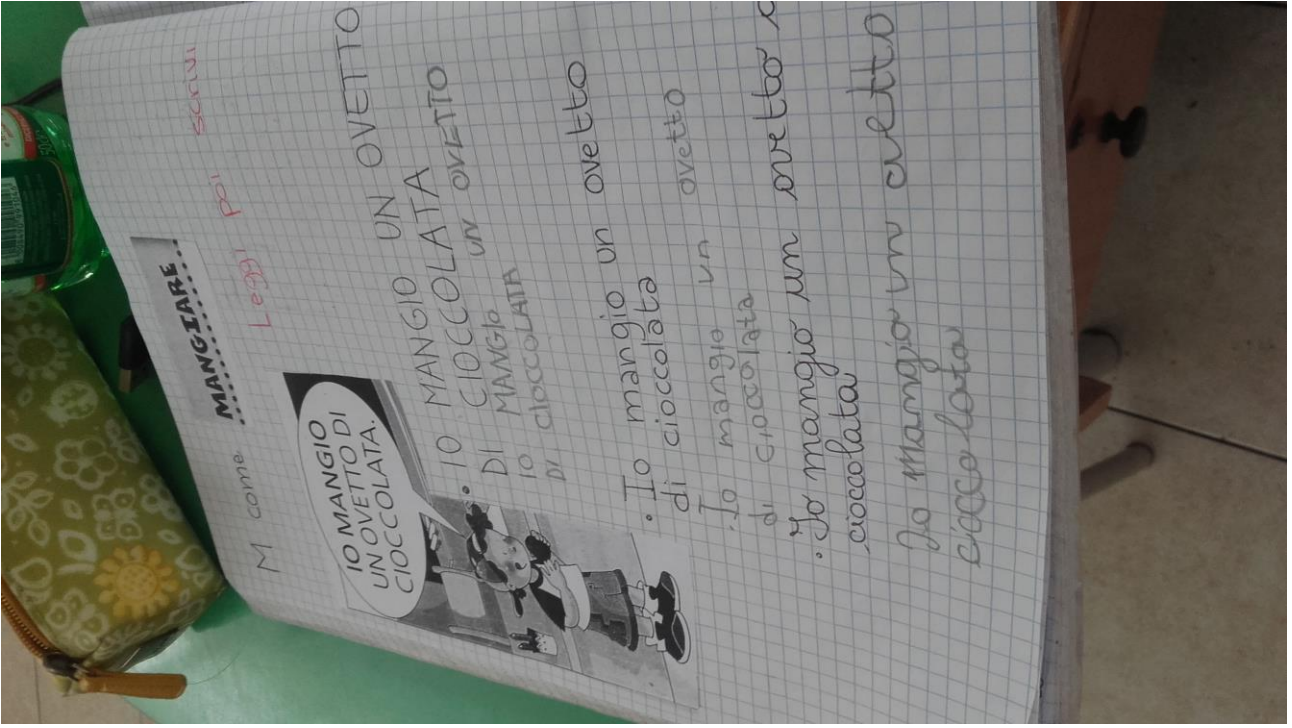 M come MANGIARE
Leggi poi scrivi
IO MANGIO
UN OVETTO DI
CIOCCOLATA.
• IO MANGIO UN OVETTO
DI CIOCCOLATA
IO MANGIO UN OVETTO
DI CIOCCOLATA
• Io mangio un ovetto
di cioccolata
• Io mangio un ovetto
di cioccolata
• Io mangio un ovetto
cioccolata
Io mangio un ovetto
cioccolata